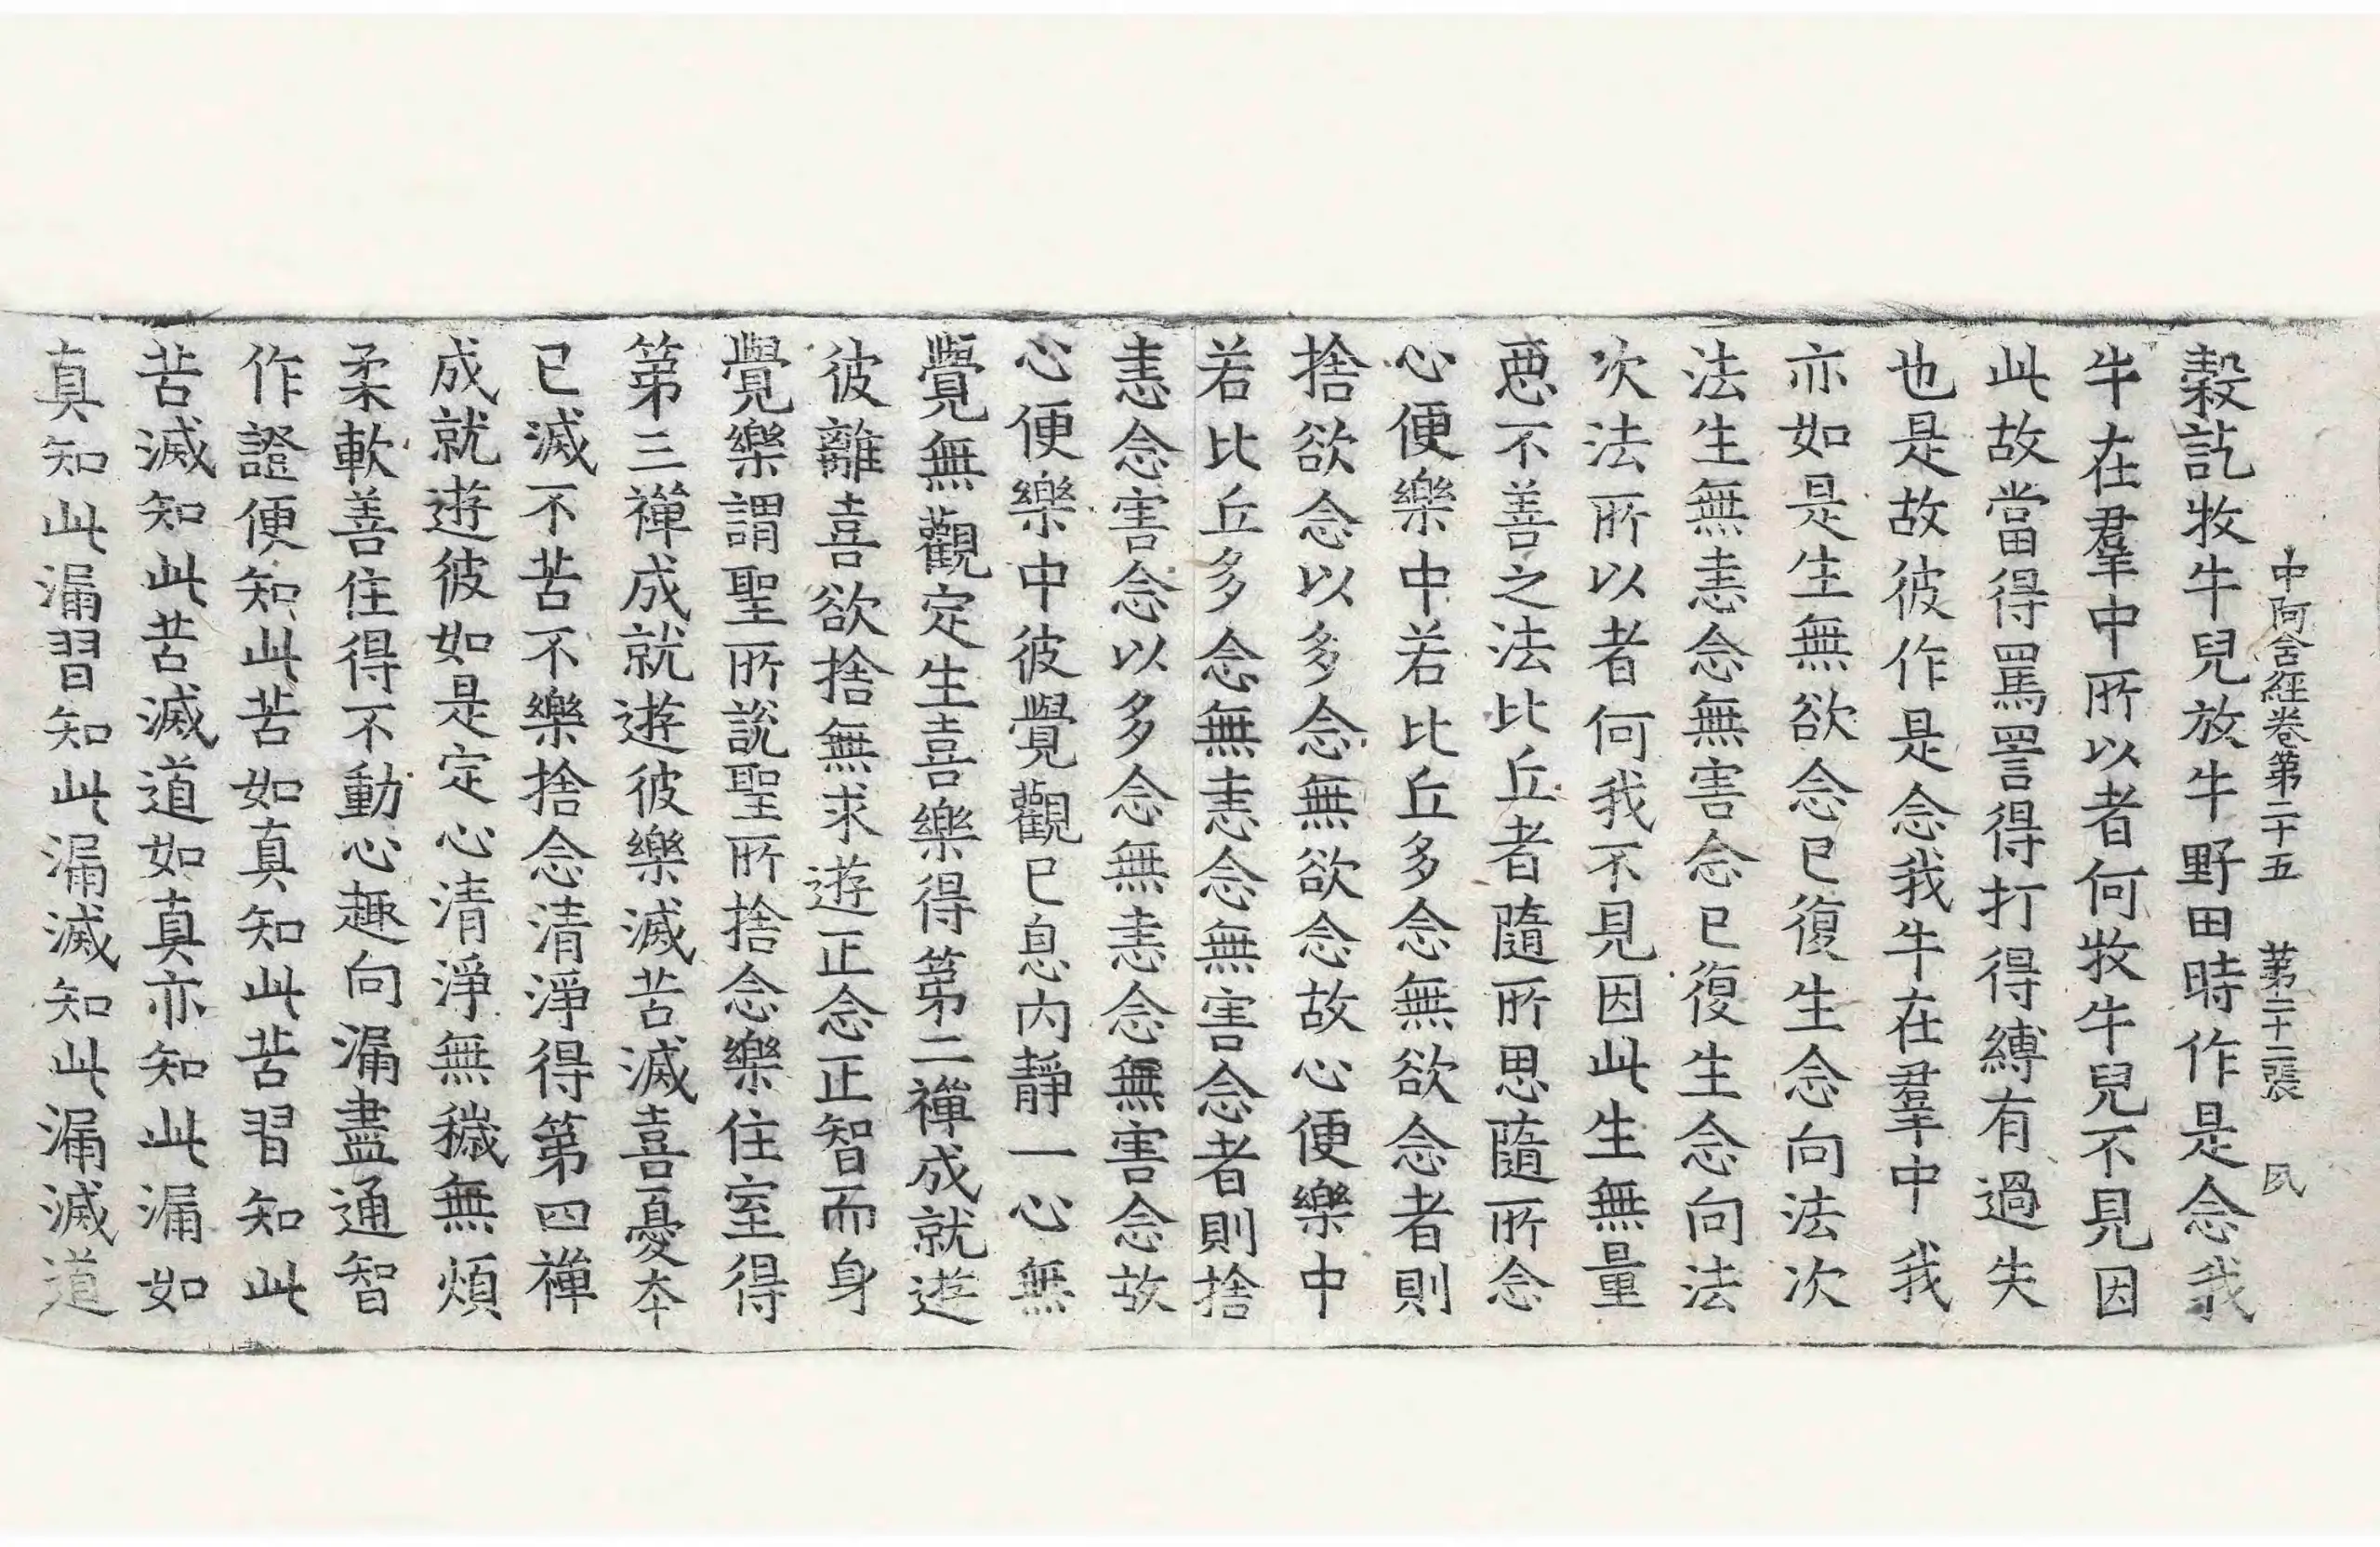 中阿含經卷第二十五　第二十二張　民
穀訖牧牛兒放牛野田時作是念我
牛在羣中所以者何牧牛兒不見因
此故當得罵詈得打得縛有過失
也是故彼作是念我牛在羣中我
亦如是生無欲念已復生念向法次
法生無恚念無害念已復生念向法
次法所以者何我不見因此生無量
惡不善之法比丘者隨所思隨所念
心便樂中若比丘多念無欲念者則
捨欲念以多念無欲念故心便樂中
若比丘多念無恚念無害念者則捨
恚念害念以多念無恚念無害念故
心便樂中彼覺觀已息內靜一心無
覺無觀定生喜樂得第二禪成就遊
彼離喜欲捨無求遊正念正智而身
覺樂謂聖所說聖所捨念樂住室得
第三禪成就遊彼樂滅苦滅喜憂本
已滅不苦不樂捨念清淨得第四禪
成就遊彼如是定心清淨無穢無煩
柔軟善住得不動心趣向漏盡通智
作證便知此苦如真知此苦習知此
苦滅知此苦滅道如真亦知此漏如
真知此漏習知此漏滅知此漏滅道